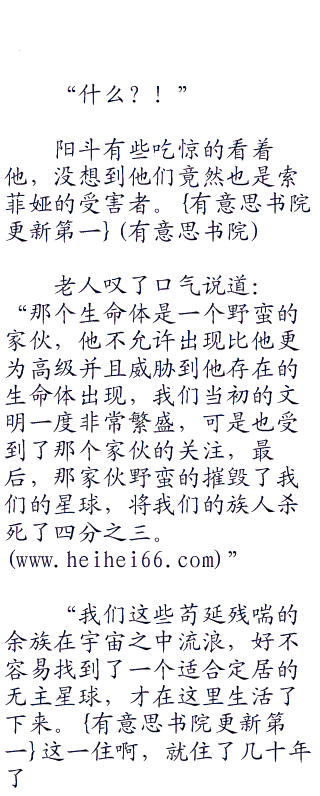 “什么？！”
阳斗有些吃惊的看着
他，没想到他们竟然也是索
菲娅的受害者。{有意思书院
更新第一}(有意思书院)
老人叹了口气说道：
“那个生命体是一个野蛮的
家伙，他不允许出现比他更
为高级并且威胁到他存在的
生命体出现，我们当初的文
明一度非常繁盛，可是也受
到了那个家伙的关注，最
后，那家伙野蛮的摧毁了我
们的星球，将我们的族人杀
死了四分之三。
(www.heihei66.com)”
“我们这些苟延残喘的
余族在宇宙之中流浪，好不
容易找到了一个适合定居的
无主星球，才在这里生活了
下来。{有意思书院更新第
一}这一住啊，就住了几十年
了